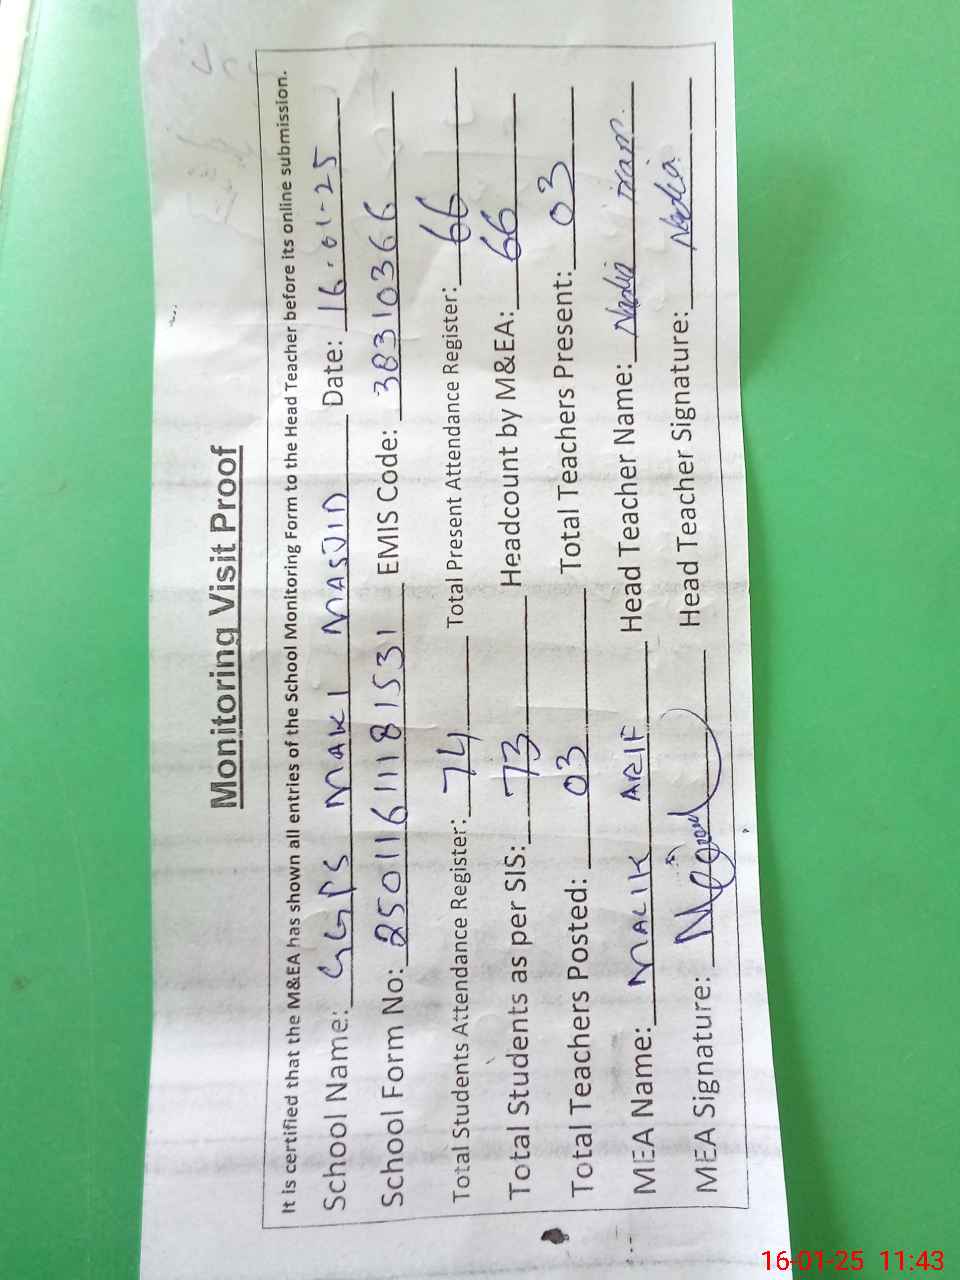 Monitoring Visit Proof
It is certified that the M&EA has shown all entries of the School Monitoring Form to the Head Teacher before its online submission.
School Name: GGPS MAKI MASJID Date: 16-01-25
School Form No: 25011611181531 EMIS Code: 38310366
Total Students Attendance Register: 74 Total Present Attendance Register: 66
Total Students as per SIS: 73 Headcount by M&EA: 66
Total Teachers Posted: 03 Total Teachers Present: 03
MEA Name: MALIK ARIF Head Teacher Name: Nadia
MEA Signature: Head Teacher Signature: Nadia
16-01-25 11:43